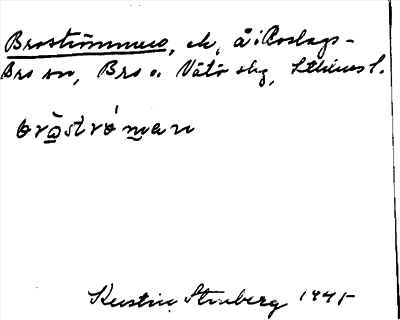 Broströmmen, ck, å i Roslags-
Bro sn, Bro o. Vätö skg, Sthlms l.
bròströ́man
Kerstin Stenberg 1945